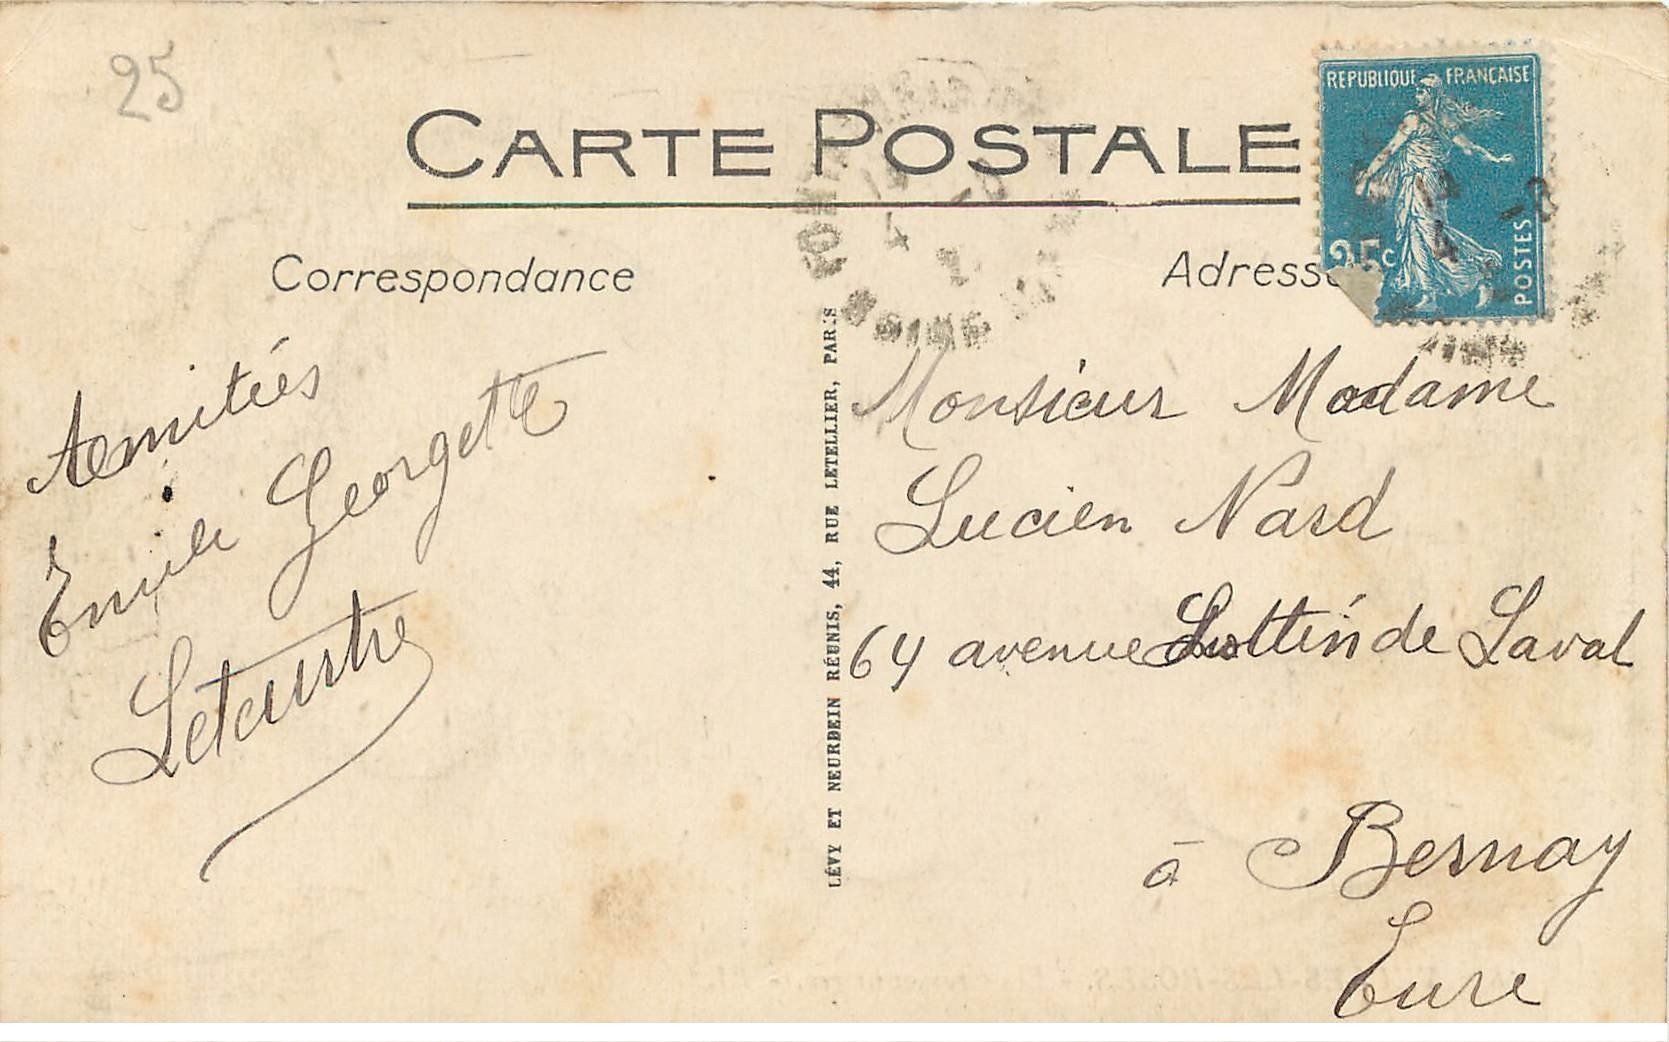 25
CARTE POSTALE
REPUBLIQUE FRANÇAISE
25c
POSTES
Correspondance
Adresse
Amitiés
Emile Georgette
Letourtre
LÉVY ET NEURDEIN RÉUNIS, 44, RUE LETELLIER, PARIS
Monsieur Madame
Lucien Nard
64 avenue Lottin de Laval
à Bernay
Eure